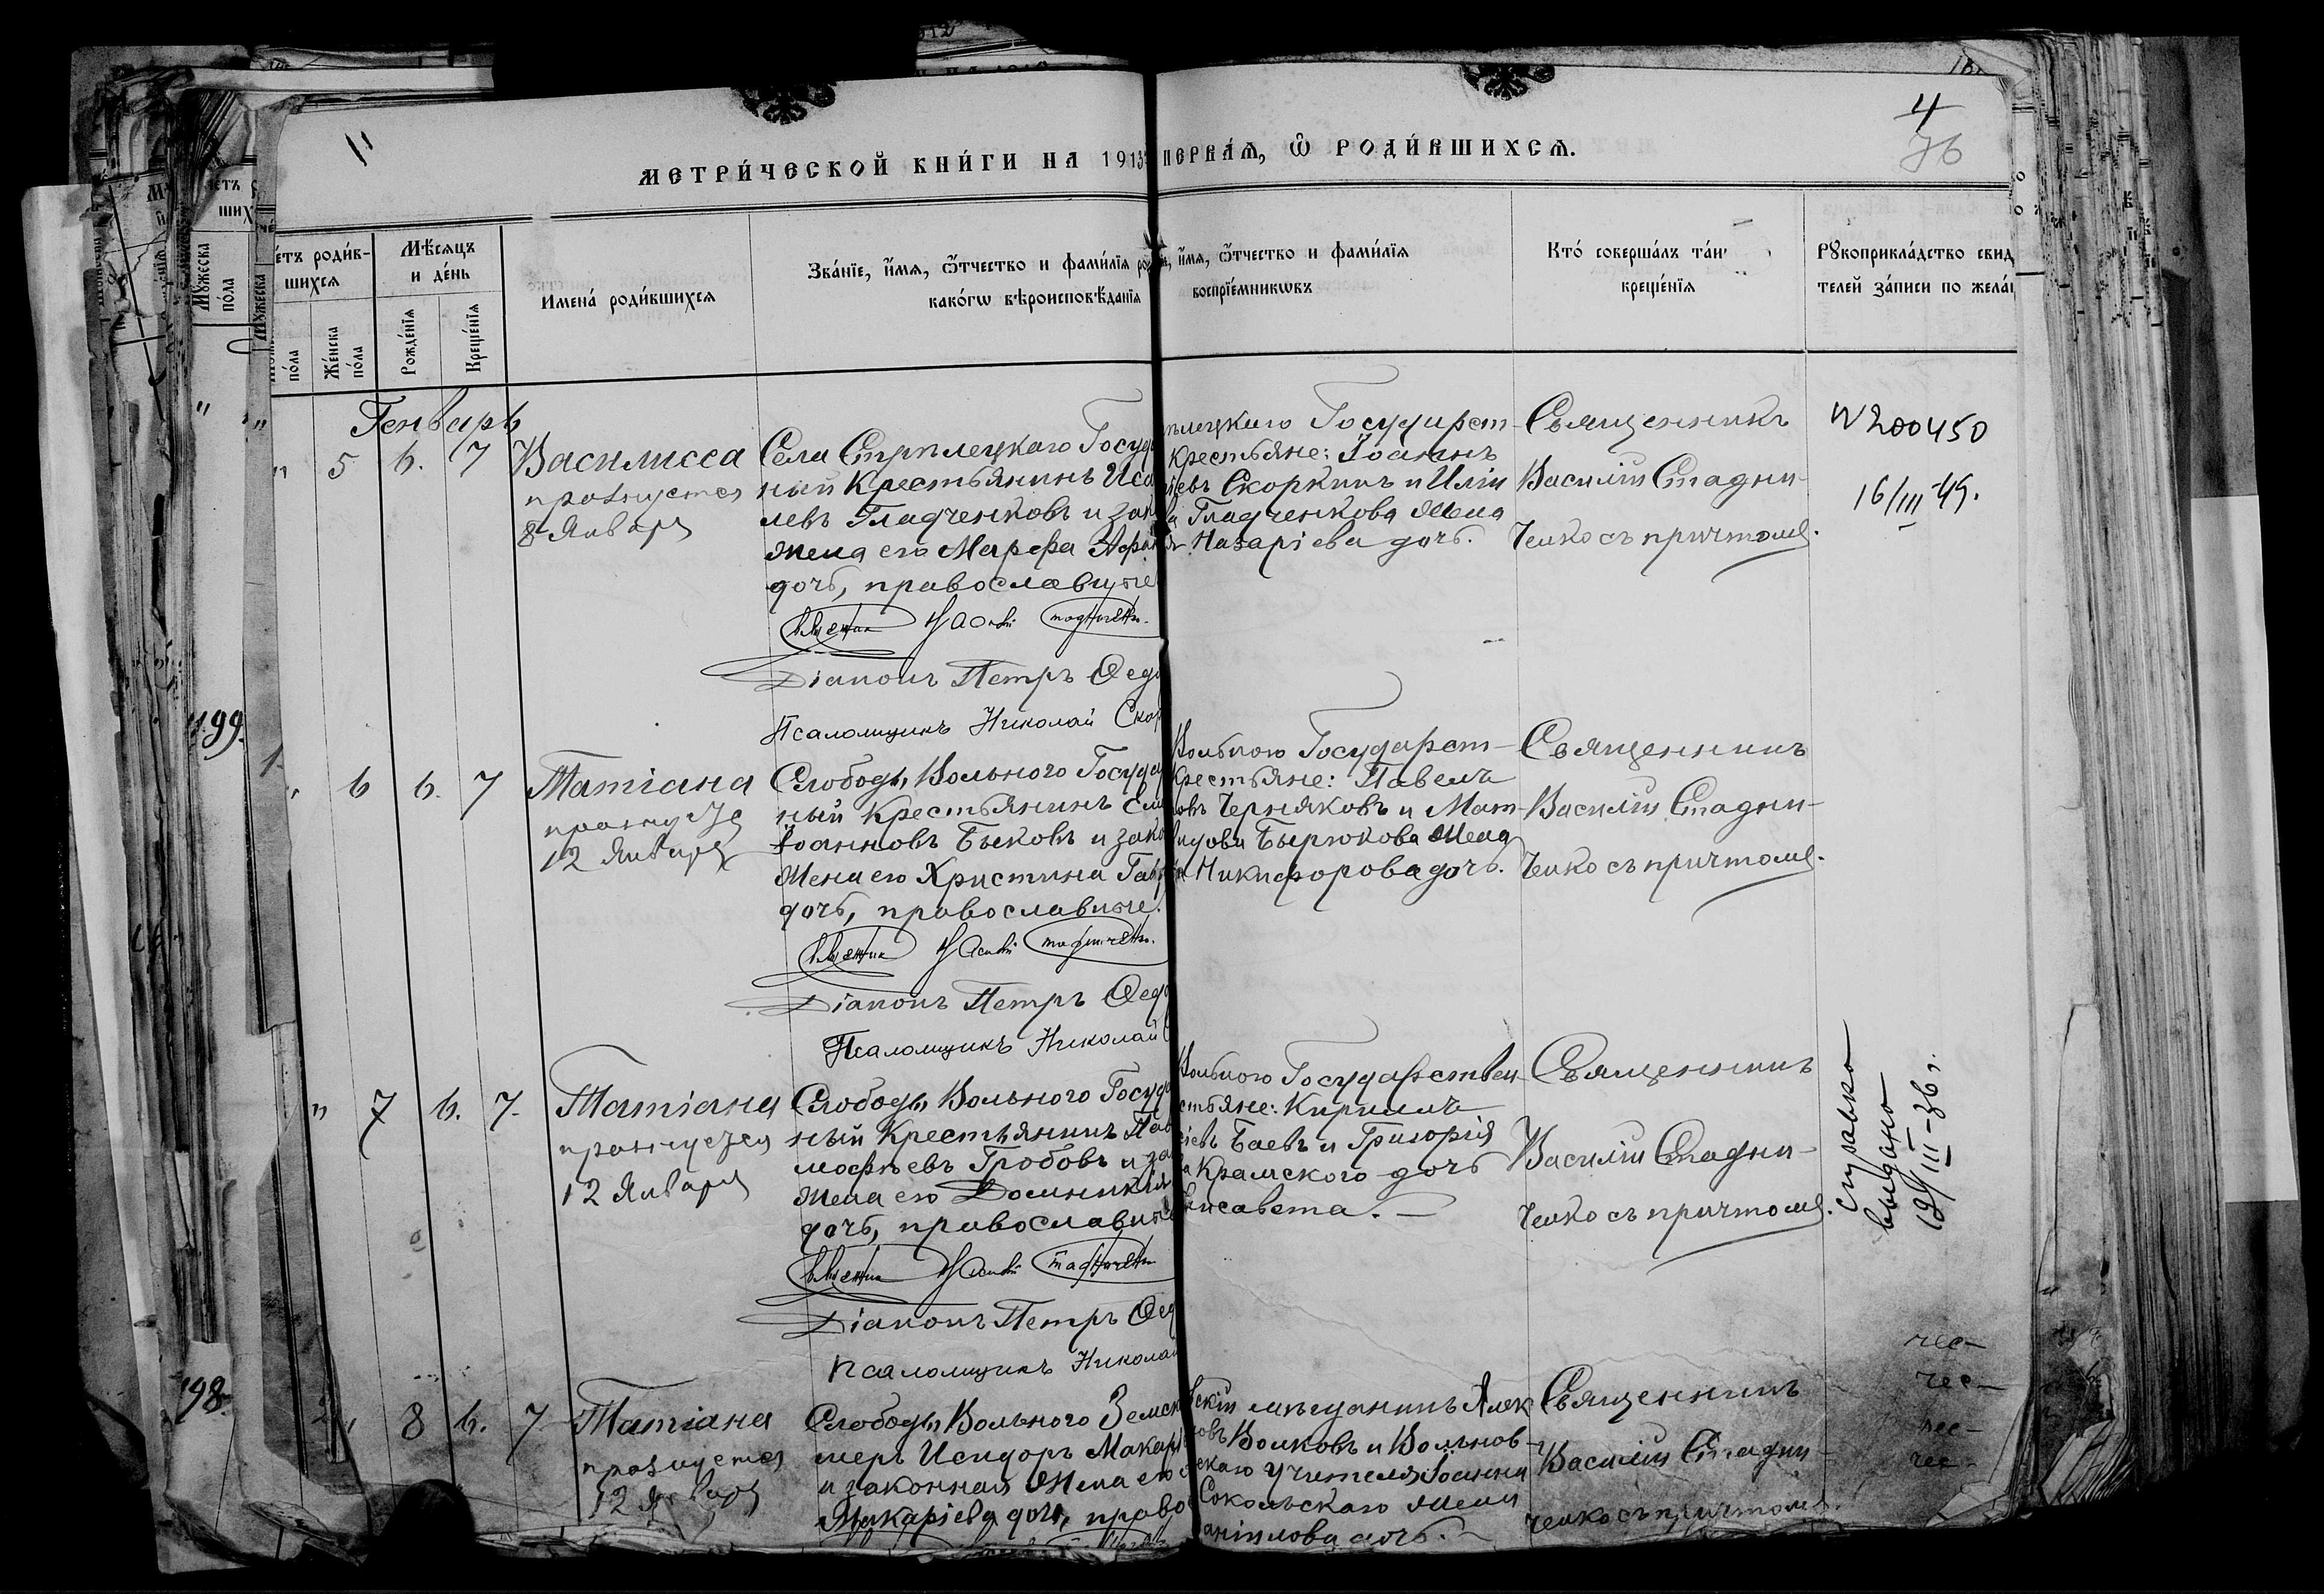 11
4
76
МЕТРИ́ЧЕСКОЙ КНИ́ГИ НА 1913 ПЕРВА́Ѧ, Ѿ РОДИ́ВШИХСѦ.
е́тъ роди́вшихсѧ
Мѣ́сѧцъ и де́нь
Имена́ роди́вшихсѧ
Зва́нїе, и́мѧ, ѻ́тчество и фами́лїѧ
како́гѡ вѣроисповѣ́данїѧ
и́мѧ, ѻ́тчество и фами́лїѧ
воспрїе́мникѡвъ
Кто́ соверша́лъ та́и
креще́нїѧ
Рꙋкоприкла́дство свид
телей за́писи по жела́
по́ла
Же́нска по́ла
Рожде́нїѧ
Креще́нїѧ
Генварь
" 5 6. 7
Василисса
празнуется
8 Января
Села Стрплецкаго Госуд
ный Крестьянинъ Иса
левъ Гладченковъ и зак
жена его Марфа Афан
дочь, православные
Діаконъ Петръ Ѳед
Псаломщикъ Николай Скор
Государст-
Крестьяне: Іоаннъ
Скоркинъ и Иліи
Гладченкова жена
Назаріева дочь.
Священникъ
Василій Стадни-
ченко съ причтомъ.
N200450
16/III-49.
" 6 6. 7
Татіана
12 Января
Слободы Вольного Госуда
ный Крестьянинъ Ели
Іоанновъ Быковъ и зако
жена его Христина Гав
дочь, православные.
Діаконъ Петръ Ѳед
Псаломщикъ Николай
Вольного Государст-
Крестьяне: Павелъ
овъ Черняковъ и Мат-
Бырюкова жена
Никифорова дочь.
Священникъ
Василій Стадни-
ченко съ причтомъ.
" 7 6. 7.
Татіана
празнуется
12 Января
Слободы Вольного Госуда
ный Крестьянинъ Пав
мофѣевъ Гробовъ и за
жена его Домникія
дочь, православные
Діаконъ Петръ Ѳед
Псаломщикъ Николай
Вольного Государствен-
стьяне: Кириллъ
Баевъ и Григорія
Крамского дочь
исавета. —
Священникъ
Василій Стадни-
ченко съ причтомъ.
справка
выдана
12/III-36 г.
" 8 6. 7
Татіана
празнуется
12 Января
Слободы Вольного Земск
меръ Исидоръ Макар
и законная жена его
Макаріева дочь, право
скій мѣщанинъ Алек
овъ Волковъ и Вольнов-
скаго учителя Іоанна
Сокольскаго жена
аніилова дочь.
Священникъ
Василій Стадни-
ченко съ причтомъ.
199.
198.